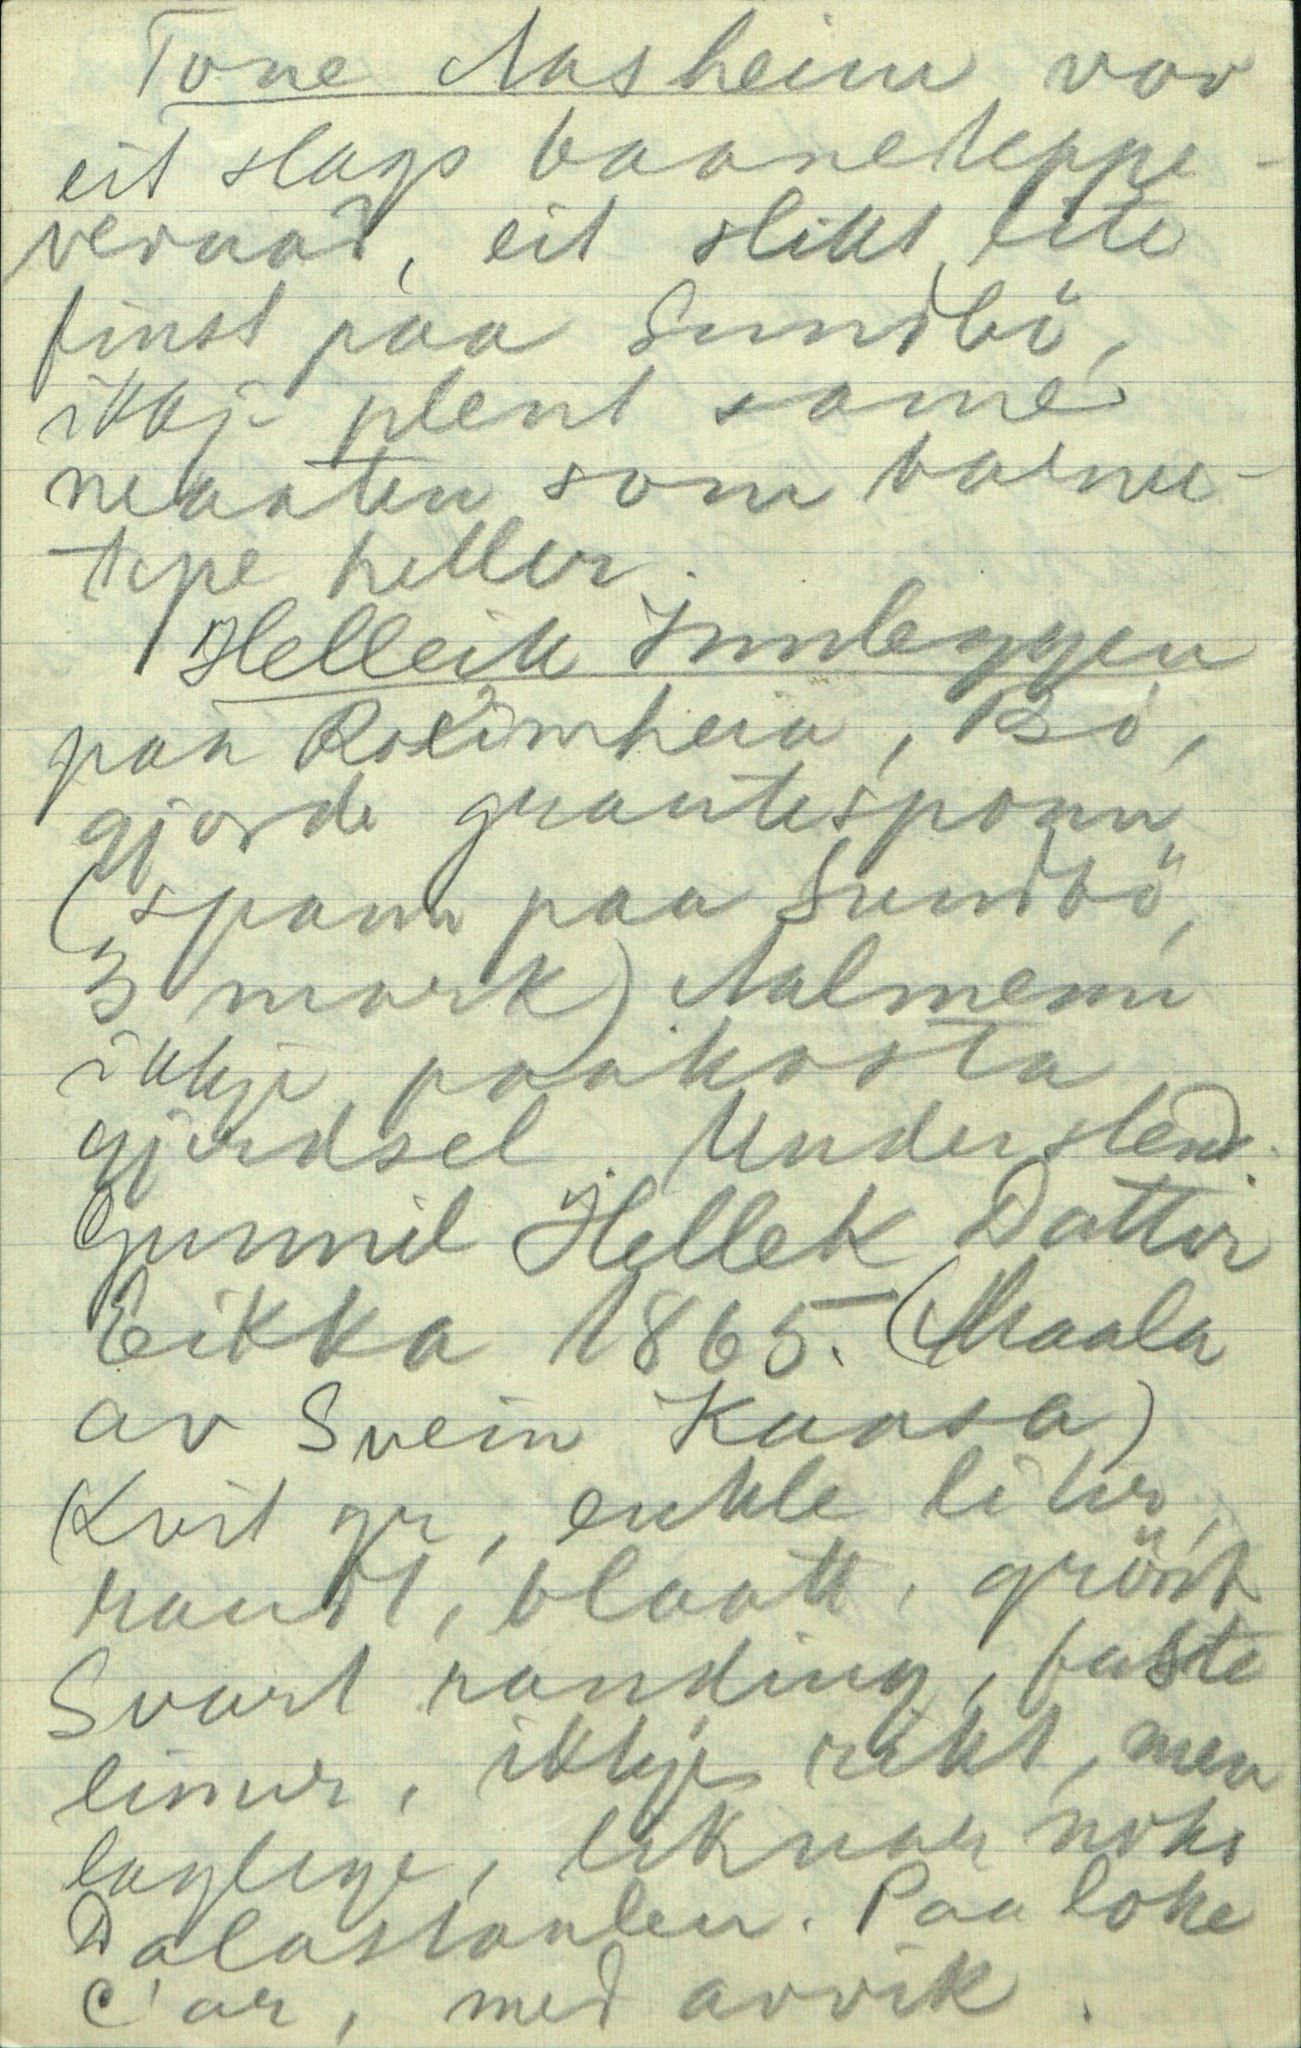 Tone Aasheim vov
eit slags baaneteppe-
vernad, eit slikt lite
finst paa Sundbö,
ikkje plent same
maaten som baane-
tepe heller.
Helleik Innleggen
paa Bö,
gjorde grautesponn
(spann paa Sundbö,
3 mark) Aalmenn
ikkje paakosta
gjerdsel. Understend.
Gunnil Hellek Datter
Eikka 1865. (Maala
av Svein Kaasa)
(Kvit gr, enkle liter,
raudt, blaatt, grönt
Svart randing, faste
linur, ikkje rikt, men
laglege, liknar noko
Dalastaalen. Paa loke
C ar, med avvik.